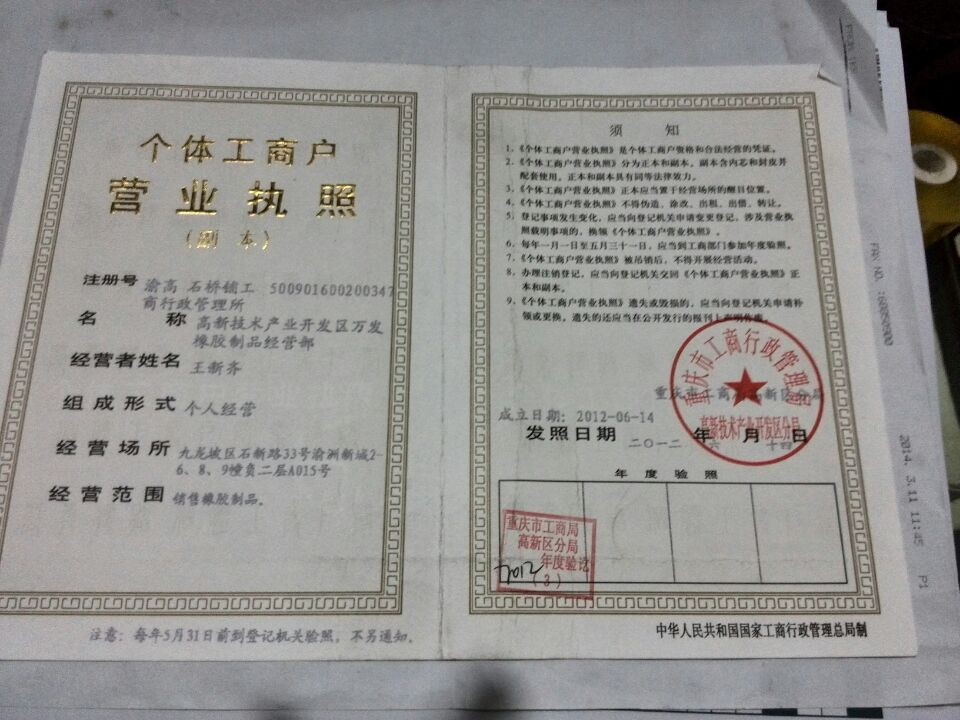 个体工商户
营业执照
（副 本）
注册号 渝高 石桥铺工 500901600200347
商行政管理所
名 称 高新技术产业开发区万发
橡胶制品经营部
经营者姓名 王新齐
组成形式 个人经营
经营场所 九龙坡区石新路33号渝洲新城2-
6、8、9幢负二层A015号
经营范围 销售橡胶制品。
注意：每年5月31日前到登记机关验照，不另通知。
须 知
1、《个体工商户营业执照》是个体工商户资格和合法经营的凭证。
2、《个体工商户营业执照》分为正本和副本，副本含内芯和封皮并
配套使用。正本和副本具有同等法律效力。
3、《个体工商户营业执照》正本应当置于经营场所的醒目位置。
4、《个体工商户营业执照》不得伪造、涂改、出租、出借、转让。
5、登记事项发生变化，应当向登记机关申请变更登记，涉及营业执
照载明事项的，换领《个体工商户营业执照》。
6、每年一月一日至五月三十一日，应当到工商部门参加年度验照。
7、《个体工商户营业执照》被吊销后，不得开展经营活动。
8、办理注销登记，应当向登记机关交回《个体工商户营业执照》正
本和副本。
9、《个体工商户营业执照》遗失或毁损的，应当向登记机关申请补
领或更换。遗失的还应当在公开发行的报刊上声明作废。
重庆市工商行政管理局
高新技术产业开发区分局
重庆市工商局高新区分局
成立日期：2012-06-14
发照日期 二〇一二 年 六 月 十四 日
年 度 验 照
重庆市工商局
高新区分局
年度验讫
2012 （3）
中华人民共和国国家工商行政管理总局制
2014. 3.11 11:45 P1